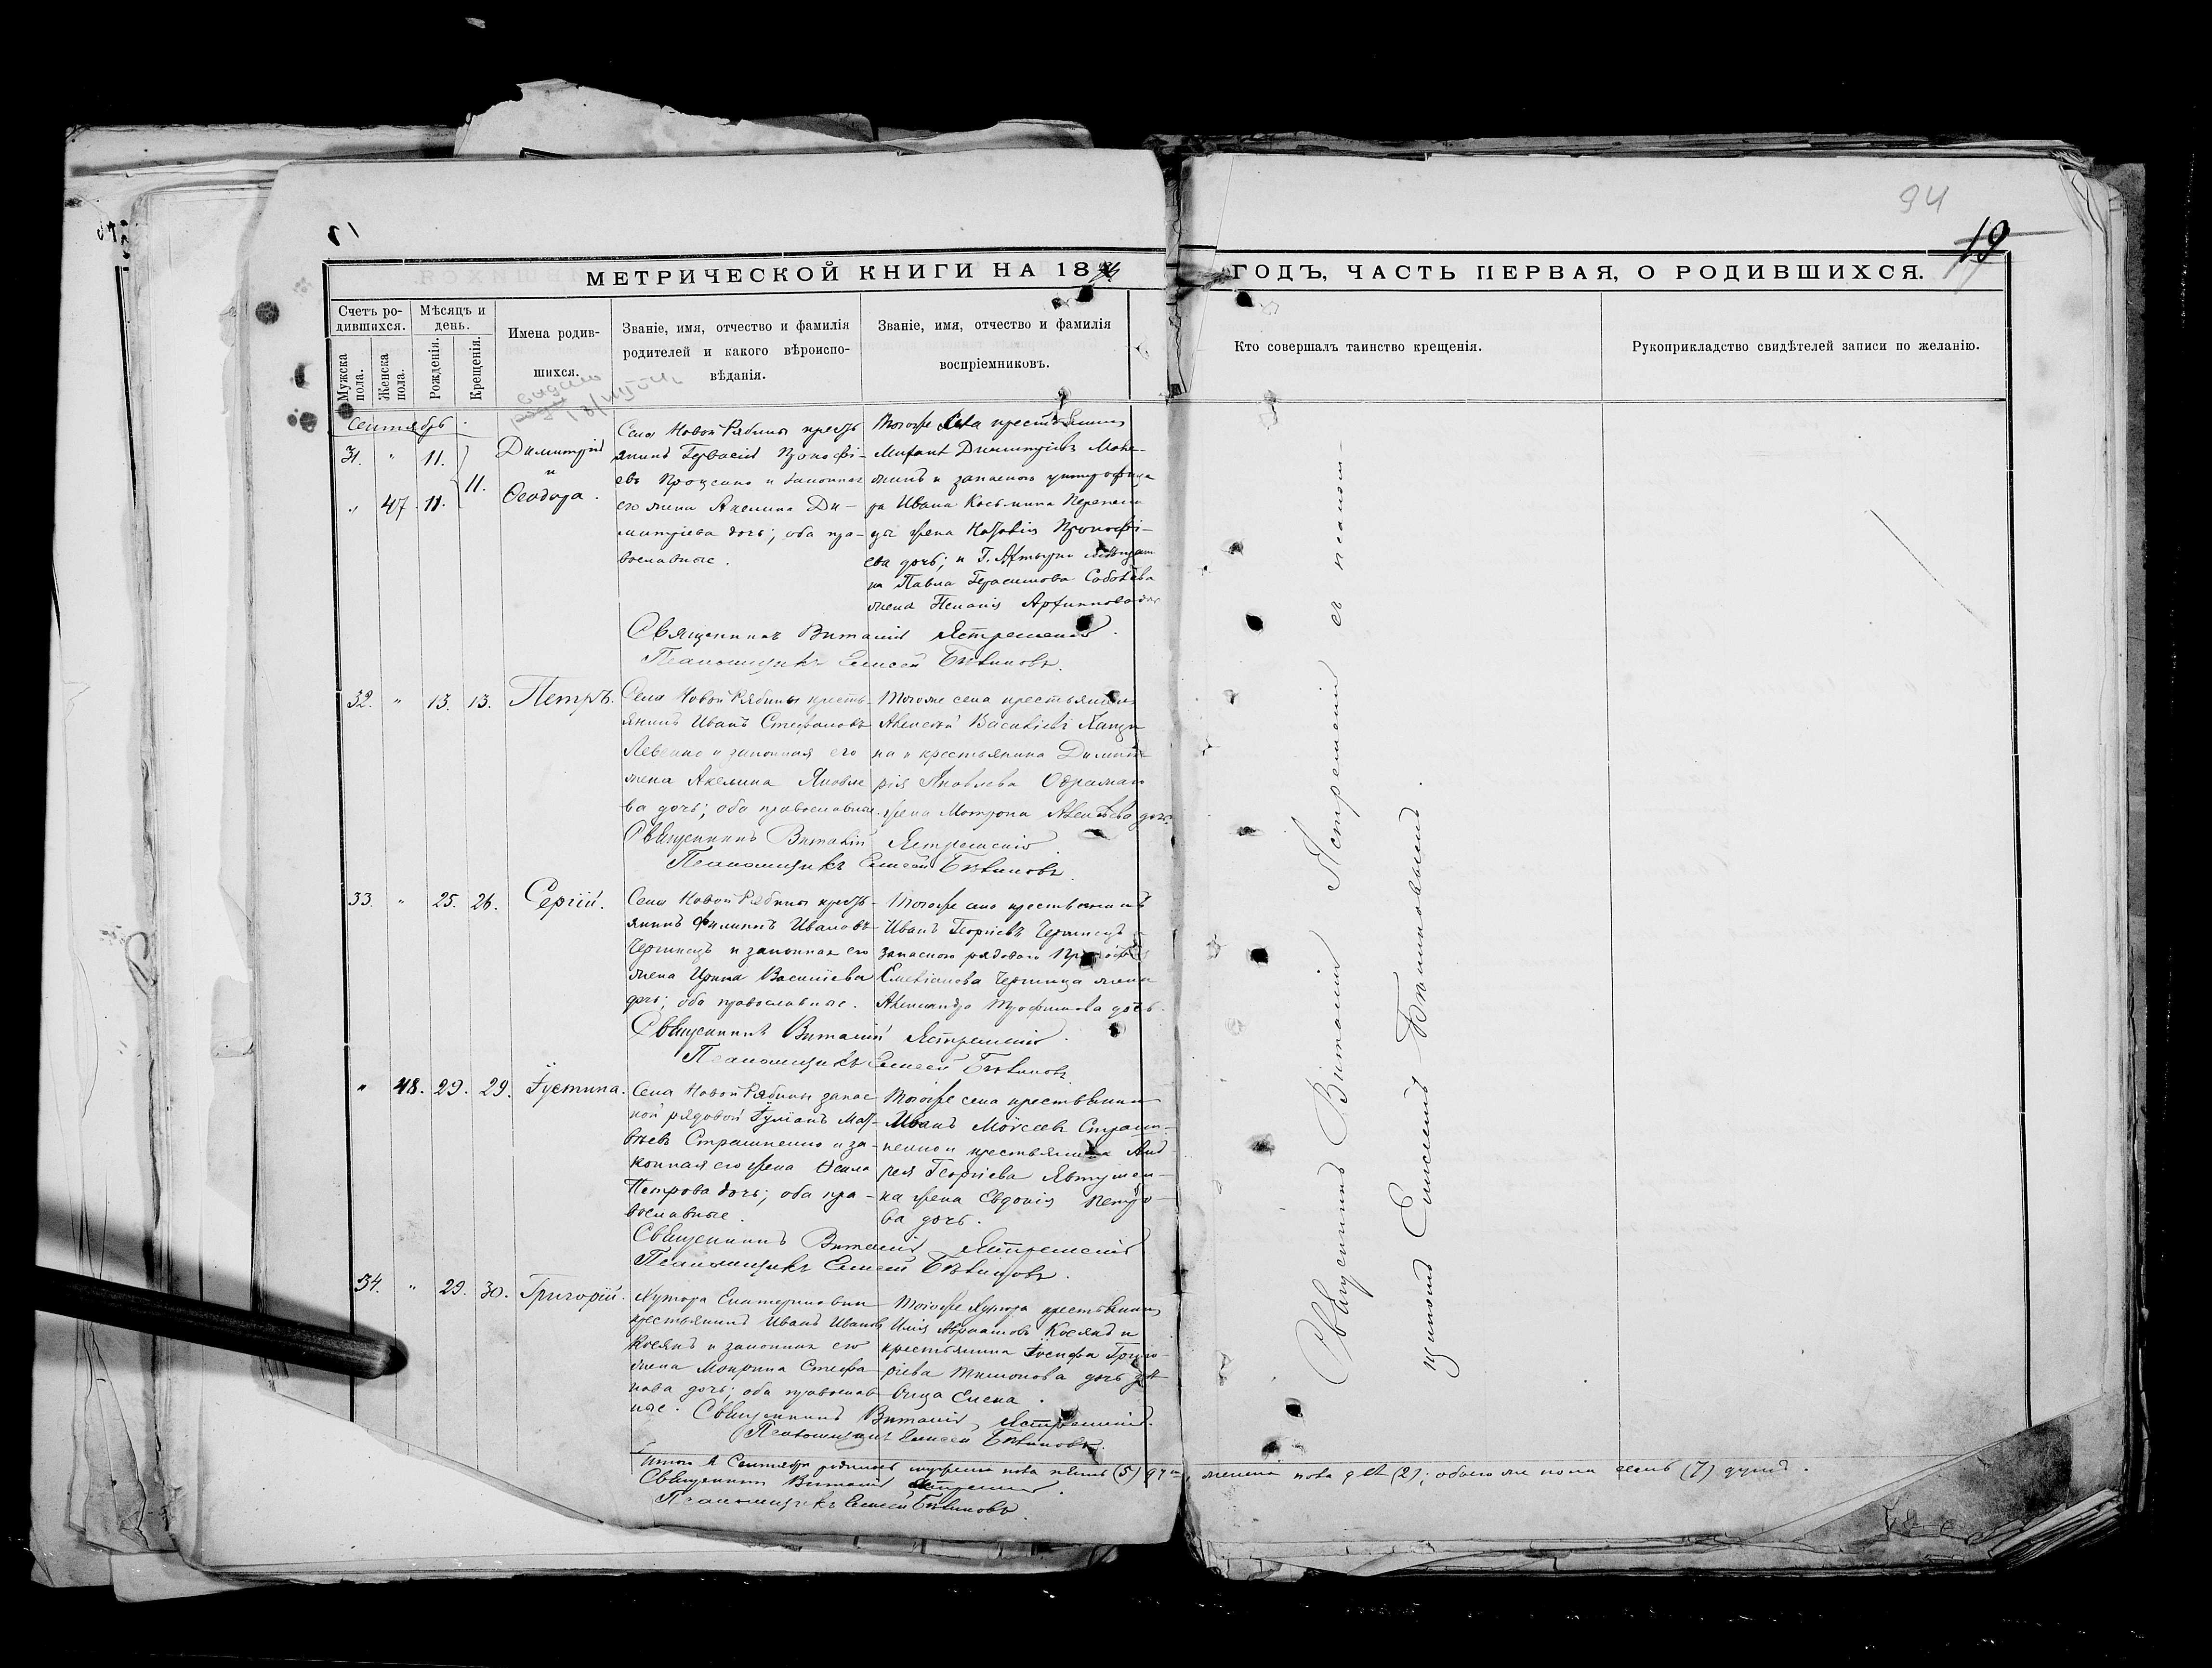 94
19
МЕТРИЧЕСКОЙ КНИГИ НА 1894 ГОДЪ, ЧАСТЬ ПЕРВАЯ, О РОДИВШИХСЯ.
Счетъ родившихся.
Мужска пола.
Женска пола.
Мѣсяцъ и день.
Рожденія.
Крещенія.
Имена родившихся.
Званіе, имя, отчество и фамилія родителей и какого вѣроисповѣданія.
Званіе, имя, отчество и фамилія воспріемниковъ.
Кто совершалъ таинство крещенія.
Рукоприкладство свидѣтелей записи по желанію.
Сентябрь.
31. " 11. 11. Димитрій
и
" 47. 11. Ѳеодора.
Села Новой Рябины кресть-
янинъ Гервасій Прокофі-
евъ Проценко и законная
его жена Акелина Ди-
митріева дочь; оба пра-
вославные.
Тогоже села крестьянинъ
Димитріевъ
и запаснаго унтерофице-
ра Ивана Косьмина
жена Прокофі-
ева дочь; и Г.
на Павла Герасимова
жена Архиппова дочь
Священникъ Виталій Ястремскій.
Псаломщикъ Елисей Бѣликовъ.
32. " 13. 13. Петръ.
Села Новой Рябины кресть-
янинъ Иванъ Стефановъ
Левенко и законная его
жена Акелина Яковле-
ва дочь; оба православные.
Тогоже села крестьянинъ
Алексѣй Василіевъ
на и крестьянина Димит-
рія Яковлева
жена Мотрона Алексѣева дочь.
Священникъ Виталій Ястремскій
Псаломщикъ Елисей Бѣликовъ.
33. " 25. 26. Сергій.
Села Новой Рябины кресть-
янинъ Филиппъ Ивановъ
Чернецъ и законная его
жена Ирина Василіева
дочь; оба православные.
Тогоже села крестьянинъ
Иванъ Георгіевъ Чернецъ и
запаснаго рядового
Емеліанова Чернеца жена
Александра Трофимова дочь.
Священникъ Виталій Ястремскій.
Псаломщикъ Елисей Бѣликовъ.
" 48. 29. 29. Іустина.
Села Новой Рябины запас-
ной рядовой Іуліанъ Мат-
вѣевъ Страшненко и за-
конная его жена
Петрова дочь; оба пра-
вославные.
Тогоже села крестьянинъ
Иванъ Моѵсеевъ Страш-
ненко и крестьянина Анд-
рея Георгіева Явтушен-
ка жена Евдокія Петро-
ва дочь.
Священникъ Виталій Ястремскій
Псаломщикъ Елисей Бѣликовъ.
34. " 29. 30. Григорій.
Хутора Екатериновки
крестьянинъ Иванъ Ивановъ
Косякъ и законная его
жена Макрина Стефа-
нова дочь; оба православ-
ные.
Тогоже хутора крестьянинъ
Илія Косякъ и
крестьянина Іосифа Григо-
ріева Тихонова дочь дѣ-
вица Елена.
Священникъ Виталій Ястремскій.
Псаломщикъ Елисей Бѣликовъ.
Итого въ Сентябрѣ родилось мужеска пола
женска пола двѣ (2); обоего же пола семь (7) душъ.
Священникъ Виталій Ястремскій.
Псаломщикъ Елисей Бѣликовъ.
Священникъ Виталій Ястремскій съ псалом-
щикомъ Елисеемъ Бѣликовымъ.